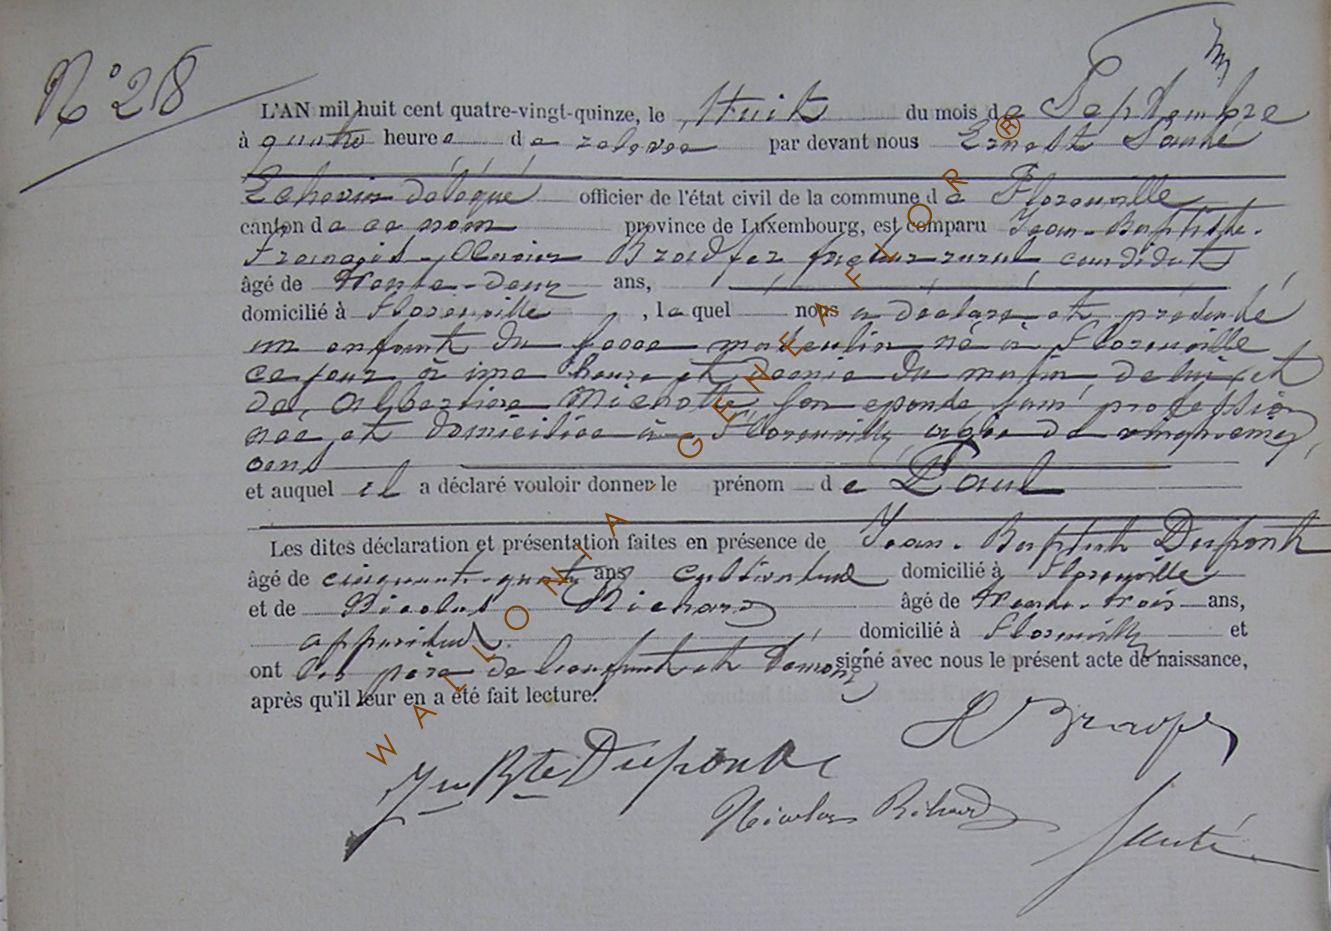 N° 28
L'AN mil huit cent quatre-vingt-quinze, le Huit du mois de Septembre
à quatre heure de relevée par devant nous Ernest Santé
Echevin délégué officier de l'état civil de la commune de Florenville
canton de ce nom province de Luxembourg, est comparu Jean-Baptiste-
François-Olivier facteur rural
âgé de trente-deux ans,
domicilié à Florenville, lequel nous a déclaré et présenté
un enfant du sexe masculin né à Florenville
ce jour à une heure et demie du matin de lui et
de Albertine Michotte, son épouse sans profession
née et domiciliée à Florenville, agée de vingt cinq
ans
et auquel il a déclaré vouloir donner le prénom de Paul
Les dites déclaration et présentation faites en présence de Jean-Baptiste Dupont
âgé de cinquante-quatre ans cultivateur domicilié à Florenville
et de Nicolas Richard âgé de trente-trois ans,
appariteur domicilié à Florenville et
ont les père de l'enfant et témoins signé avec nous le présent acte de naissance,
après qu'il leur en a été fait lecture.
Jn Bte Dupont
Nicolas Richard
Santé
WALLONIA GENEAFLOR ®